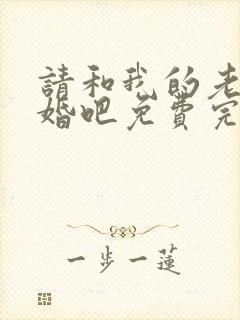 請和我的老
婚吧免費完
一步一蓮